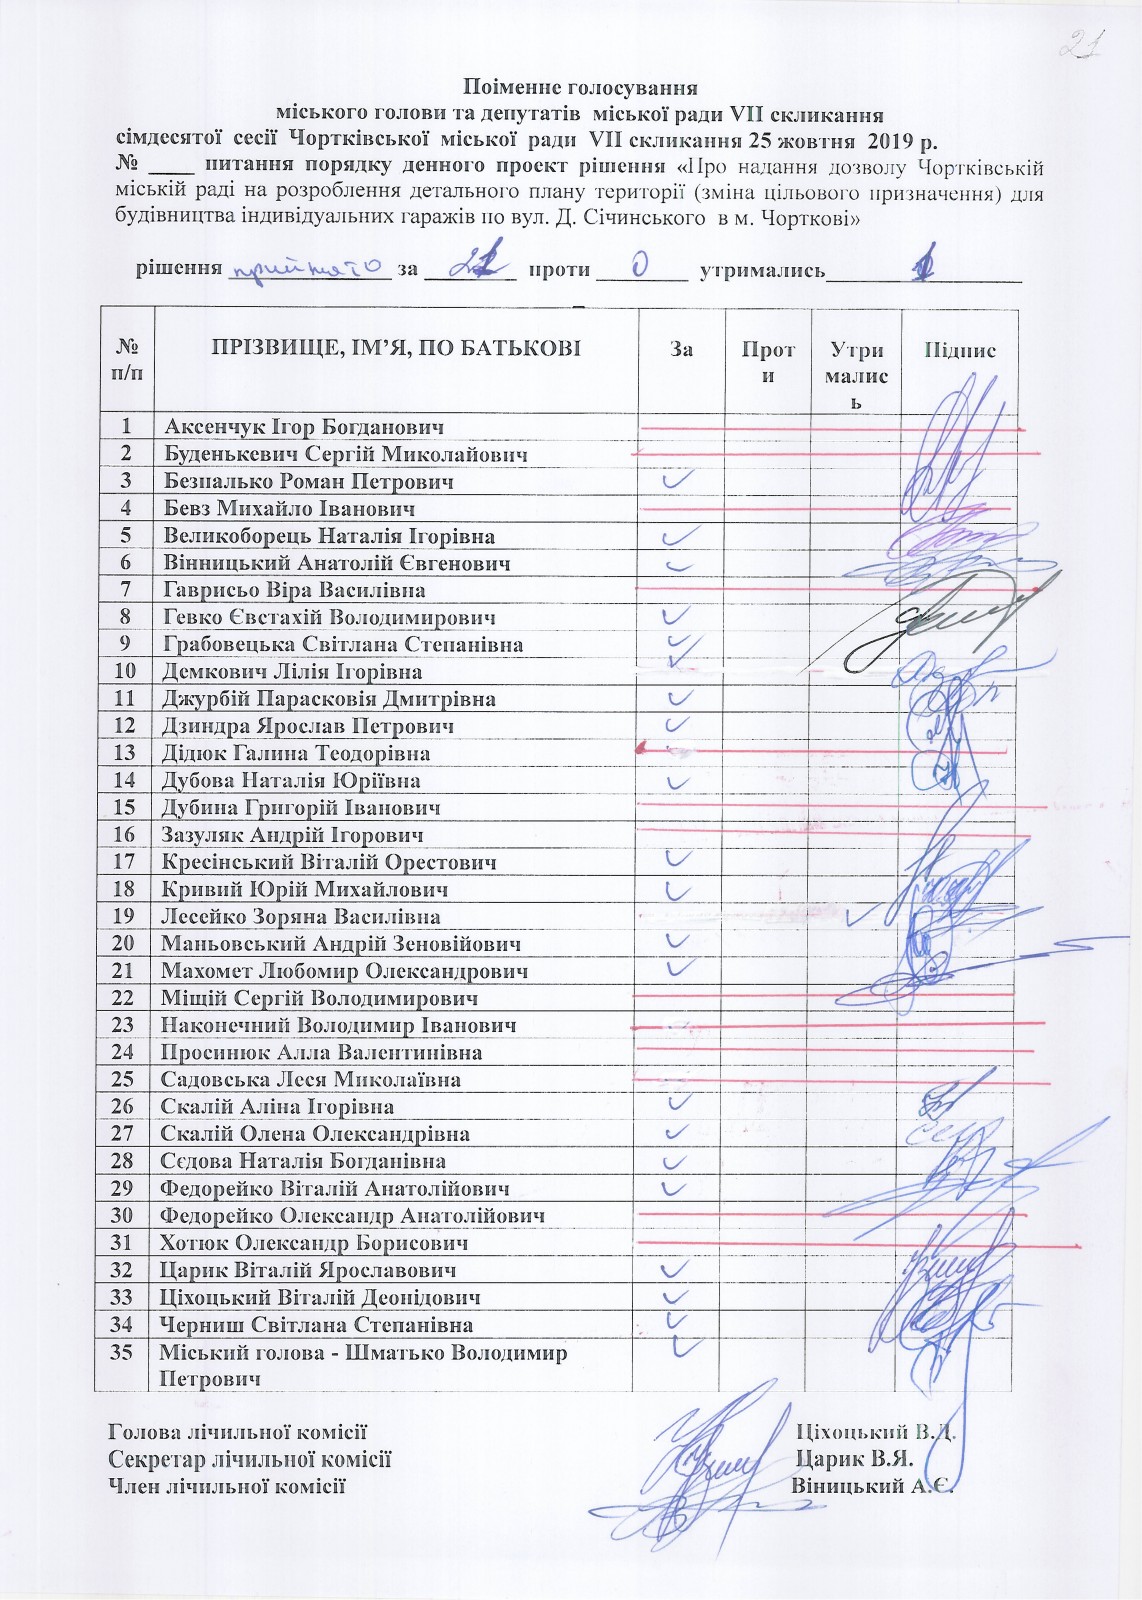 21
Поіменне голосування
міського голови та депутатів міської ради VII скликання
сімдесятої сесії Чортківської міської ради VII скликання 25 жовтня 2019 р.
№ ____ питання порядку денного проект рішення «Про надання дозволу Чортківській
міській раді на розроблення детального плану території (зміна цільового призначення) для
будівництва індивідуальних гаражів по вул. Д. Січинського в м. Чорткові»
рішення прийнято за 21 проти 0 утримались 1
№ п/п ПРІЗВИЩЕ, ІМ’Я, ПО БАТЬКОВІ За Проти Утрималис ь Підпис
1 Аксенчук Ігор Богданович
2 Буденькевич Сергій Миколайович
3 Безпалько Роман Петрович
4 Бевз Михайло Іванович
5 Великоборець Наталія Ігорівна
6 Вінницький Анатолій Євгенович
7 Гаврисьо Віра Василівна
8 Гевко Євстахій Володимирович
9 Грабовецька Світлана Степанівна
10 Демкович Лілія Ігорівна
11 Джурбій Парасковія Дмитрівна
12 Дзиндра Ярослав Петрович
13 Дідюк Галина Теодорівна
14 Дубова Наталія Юріївна
15 Дубина Григорій Іванович
16 Зазуляк Андрій Ігорович
17 Кресінський Віталій Орестович
18 Кривий Юрій Михайлович
19 Лесейко Зоряна Василівна
20 Маньовський Андрій Зеновійович
21 Махомет Любомир Олександрович
22 Міщій Сергій Володимирович
23 Наконечний Володимир Іванович
24 Просинюк Алла Валентинівна
25 Садовська Леся Миколаївна
26 Скалій Аліна Ігорівна
27 Скалій Олена Олександрівна
28 Сєдова Наталія Богданівна
29 Федорейко Віталій Анатолійович
30 Федорейко Олександр Анатолійович
31 Хотюк Олександр Борисович
32 Царик Віталій Ярославович
33 Ціхоцький Віталій Деонідович
34 Черниш Світлана Степанівна
35 Міський голова - Шматько Володимир
Петрович
Голова лічильної комісії Ціхоцький В.Д.
Секретар лічильної комісії Царик В.Я.
Член лічильної комісії Віницький А.Є.